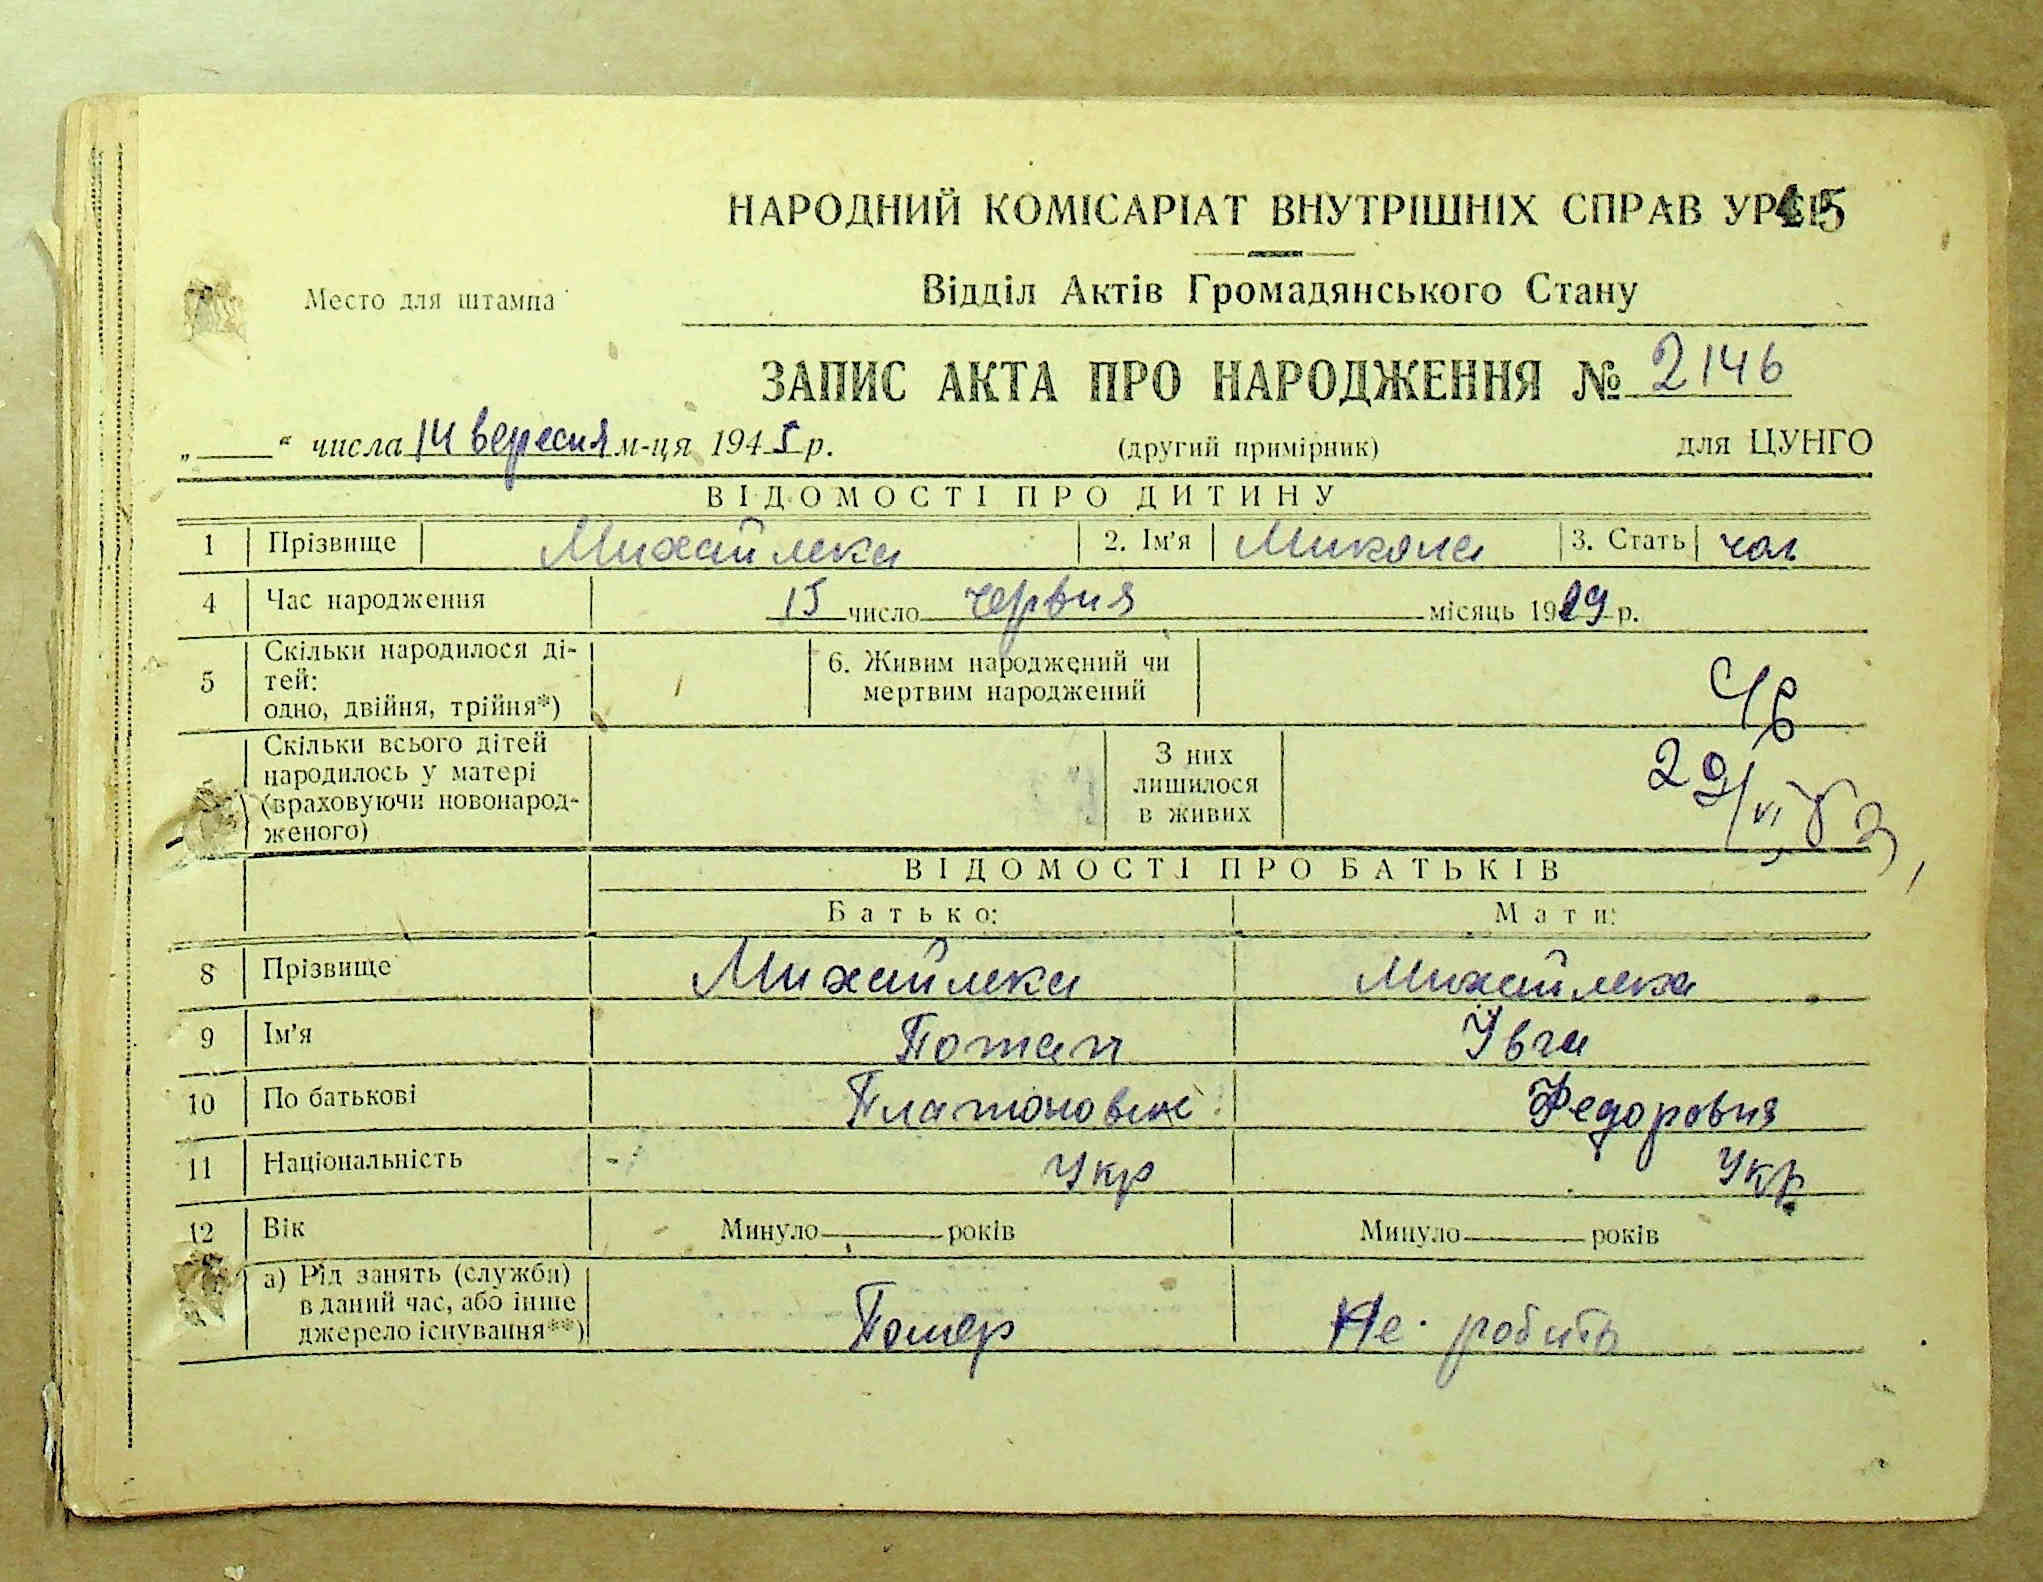 НАРОДНИЙ КОМІСАРІАТ ВНУТРІШНІХ СПРАВ УРСР
45
Место для штампа
Відділ Актів Громадянського Стану
ЗАПИС АКТА ПРО НАРОДЖЕННЯ № 2146
„ “ числа 14 вересня м-ця 1945 р. (другий примірник) для ЦУНГО
ВІДОМОСТІ ПРО ДИТИНУ
1 Прізвище Михайлека 2. Ім'я Микола 3. Стать чол
4 Час народження 15 число червня місяць 1929 р.
5 Скільки народилося ді-
тей:
одно, двійня, трійня*)
6. Живим народжений чи
мертвим народжений
Скільки всього дітей
народилось у матері
(враховуючи новонарод-
женого)
З них
лишилося
в живих
ВІДОМОСТІ ПРО БАТЬКІВ
Батько: Мати:
8 Прізвище Михайлека Михайлека
9 Ім'я Потап Увга
10 По батькові Платонович Федоровня
11 Національність Укр Укр.
12 Вік Минуло років Минуло років
а) Рід занять (служби)
в даний час, або інше
джерело існування**)
Помер Не робить